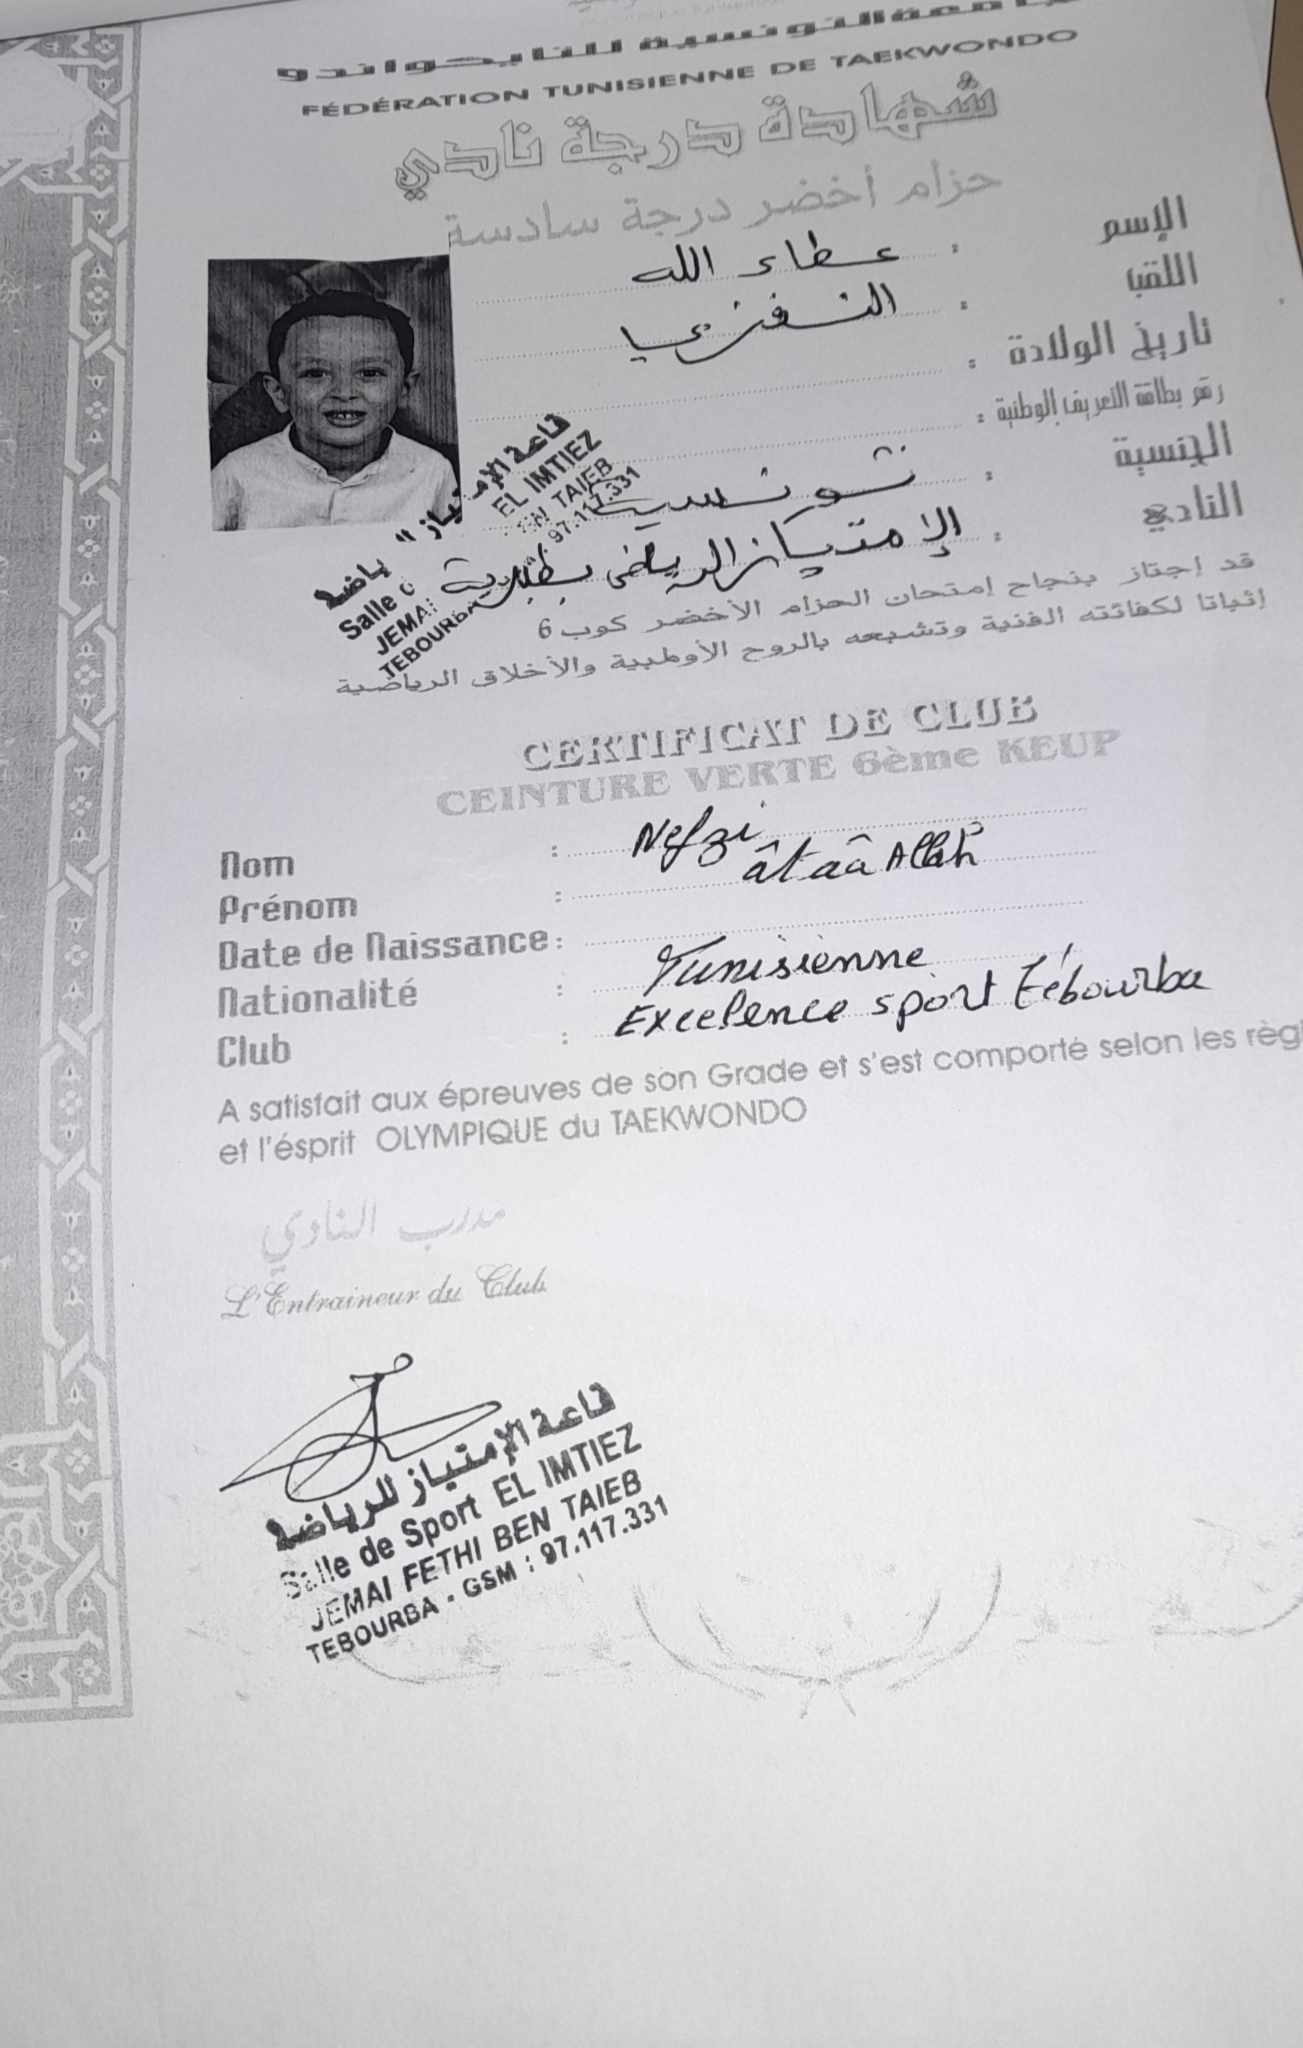 الجامعة التونسية للتايكواندو
FÉDÉRATION TUNISIENNE DE TAEKWONDO
شهادة درجة نادي
حزام أخضر درجة سادسة
الإسم : عطاء الله
اللقب : النفزي
تاريخ الولادة :
رقم بطاقة التعريف الوطنية :
الجنسية : تونسية
النادي : الإمتياز الرياضي بطبربة
قاعة الإمتياز رياضة
Salle
EL IMTIEZ
JEMAI BEN TAIEB
TEBOURBA 97.117.331
قد إجتاز بنجاح إمتحان الحزام الأخضر كوب 6
إثباتا لكفائته الفنية وتشبعه بالروح الأولمبية والأخلاق الرياضية
CERTIFICAT DE CLUB
CEINTURE VERTE 6ème KEUP
Nom : Nefzi
Prénom : âtaâ Allah
Date de Naissance :
Nationalité : Tunisienne
Club : Excelence sport Tébourba
A satisfait aux épreuves de son Grade et s'est comporté selon les règl
et l'ésprit OLYMPIQUE du TAEKWONDO
مدرب النادي
L'Entraineur du Club
قاعة الإمتياز للرياضة
Salle de Sport EL IMTIEZ
JEMAI FETHI BEN TAIEB
TEBOURBA - GSM : 97.117.331